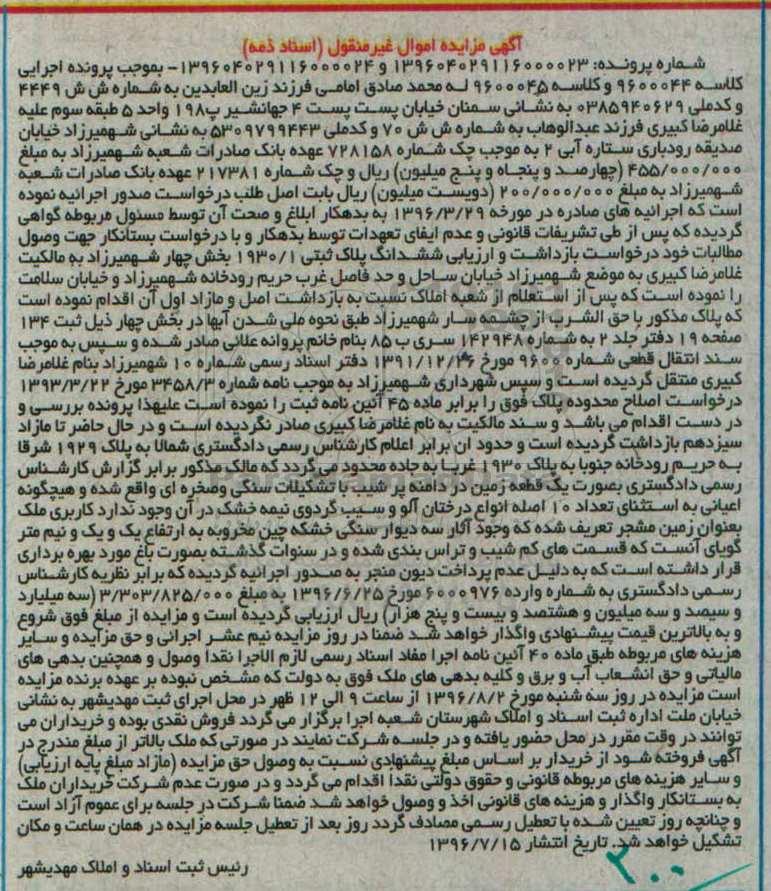 آگهی مزایده اموال غیرمنقول (اسناد ذمه)
شماره پرونده: ۱۳۹۶۰۴۰۲۹۱۱۶۰۰۰۰۲۳ و ۱۳۹۶۰۴۰۲۹۱۱۶۰۰۰۰۲۴- بموجب پرونده اجرایی
کلاسه ۹۶۰۰۰۴۴ و کلاسه ۹۶۰۰۰۴۵ له محمد صادق امامی فرزند زین العابدین به شماره ش ش ۴۴۴۹
و کدملی ۰۳۸۵۹۴۰۶۲۹ به نشانی سمنان خیابان پست پست ۴ جهانشیر پ۱۹۸ واحد ۵ طبقه سوم علیه
غلامرضا کبیری فرزند عبدالوهاب به شماره ش ش ۷۰ و کدملی ۵۳۰۹۷۹۹۴۴۳ به نشانی شهمیرزاد خیابان
صدیقه رودباری ستاره آبی ۲ به موجب چک شماره ۷۲۸۱۵۸ عهده بانک صادرات شعبه شهمیرزاد به مبلغ
۴۵۵/۰۰۰/۰۰۰ (چهارصد و پنجاه و پنج میلیون) ریال و چک شماره ۲۱۷۳۸۱ عهده بانک صادرات شعبه
شهمیرزاد به مبلغ ۲۰۰/۰۰۰/۰۰۰ (دویست میلیون) ریال بابت اصل طلب درخواست صدور اجرائیه نموده
است که اجرائیه های صادره در مورخه ۱۳۹۶/۳/۲۹ به بدهکار ابلاغ و صحت آن توسط مسئول مربوطه گواهی
گردیده که پس از طی تشریفات قانونی و عدم ایفای تعهدات توسط بدهکار و با درخواست بستانکار جهت وصول
مطالبات خود درخواست بازداشت و ارزیابی ششدانگ پلاک ثبتی ۱۹۳۰/۱ بخش چهار شهمیرزاد به مالکیت
غلامرضا کبیری به موضع شهمیرزاد خیابان ساحل و حد فاصل غرب حریم رودخانه شهمیرزاد و خیابان سلامت
را نموده است که پس از استعلام از شعبه املاک نسبت به بازداشت اصل و مازاد اول آن اقدام نموده است
که پلاک مذکور با حق الشرب از چشمه سار شهمیرزاد طبق نحوه ملی شدن آبها در بخش چهار ذیل ثبت ۱۳۴
صفحه ۱۹ دفتر جلد ۲ به شماره ۱۴۲۹۴۸ سری ب ۸۵ بنام خانم پروانه علائی صادر شده و سپس به موجب
سند انتقال قطعی شماره ۹۶۰۰ مورخ ۱۳۹۱/۱۲/۲۶ دفتر اسناد رسمی شماره ۱۰ شهمیرزاد بنام غلامرضا
کبیری منتقل گردیده است و سپس شهرداری شهمیرزاد به موجب نامه شماره ۳۴۵۸/۳ مورخ ۱۳۹۳/۳/۲۲
درخواست اصلاح محدوده پلاک فوق را برابر ماده ۴۵ آئین نامه ثبت را نموده است علیهذا پرونده بررسی و
در دست اقدام می باشد و سند مالکیت به نام غلامرضا کبیری صادر نگردیده است و در حال حاضر تا مازاد
سیزدهم بازداشت گردیده است و حدود ان برابر اعلام کارشناس رسمی دادگستری شمالا به پلاک ۱۹۲۹ شرقا
به حریم رودخانه جنوبا به پلاک ۱۹۳۰ غربا به جاده محدود می گردد که مالک مذکور برابر گزارش کارشناس
رسمی دادگستری بصورت یک قطعه زمین در دامنه پر شیب با تشکیلات سنگی وصخره ای واقع شده و هیچگونه
اعیانی به استثنای تعداد ۱۰ اصله انواع درختان آلو و سیب گردوی نیمه خشک در آن وجود ندارد کاربری ملک
بعنوان زمین مشجر تعریف شده که وجود آثار سه دیوار سنگی خشکه چین مخروبه به ارتفاع یک و یک و نیم متر
گویای آنست که قسمت های کم شیب و تراس بندی شده و در سنوات گذشته بصورت باغ مورد بهره برداری
قرار داشته است که به دلیل عدم پرداخت دیون منجر به صدور اجرائیه گردیده که برابر نظریه کارشناس
رسمی دادگستری به شماره وارده ۶۰۰۰۹۷۶ مورخ ۱۳۹۶/۶/۲۵ به مبلغ ۳/۳۰۳/۸۲۵/۰۰۰ (سه میلیارد
و سیصد و سه میلیون و هشتصد و بیست و پنج هزار) ریال ارزیابی گردیده است و مزایده از مبلغ فوق شروع
و به بالاترین قیمت پیشنهادی واگذار خواهد شد ضمنا در روز مزایده نیم عشر اجرائی و حق مزایده و سایر
هزینه های مربوطه طبق ماده ۴۰ آئین نامه اجرا مفاد اسناد رسمی لازم الاجرا نقدا وصول و همچنین بدهی های
مالیاتی و حق انشعاب آب و برق و کلیه بدهی های ملک فوق به دولت که مشخص نبوده بر عهده برنده مزایده
است مزایده در روز سه شنبه مورخ ۱۳۹۶/۸/۲ از ساعت ۹ الی ۱۲ ظهر در محل اجرای ثبت مهدیشهر به نشانی
خیابان ملت اداره ثبت اسناد و املاک شهرستان شعبه اجرا برگزار می گردد فروش نقدی بوده و خریداران می
توانند در وقت مقرر در محل حضور یافته و در جلسه شرکت نمایند در صورتی که ملک بالاتر از مبلغ مندرج در
آگهی فروخته شود از خریدار بر اساس مبلغ پیشنهادی نسبت به وصول حق مزایده (مازاد مبلغ پایه ارزیابی)
و سایر هزینه های مربوطه قانونی و حقوق دولتی نقدا اقدام می گردد و در صورت عدم شرکت خریداران ملک
به بستانکار واگذار و هزینه های قانونی اخذ و وصول خواهد شد ضمنا شرکت در جلسه برای عموم آزاد است
و چنانچه روز تعیین شده با تعطیل رسمی مصادف گردد روز بعد از تعطیل جلسه مزایده در همان ساعت و مکان
تشکیل خواهد شد. تاریخ انتشار ۱۳۹۶/۷/۱۵
رئیس ثبت اسناد و املاک مهدیشهر
۲۰۰